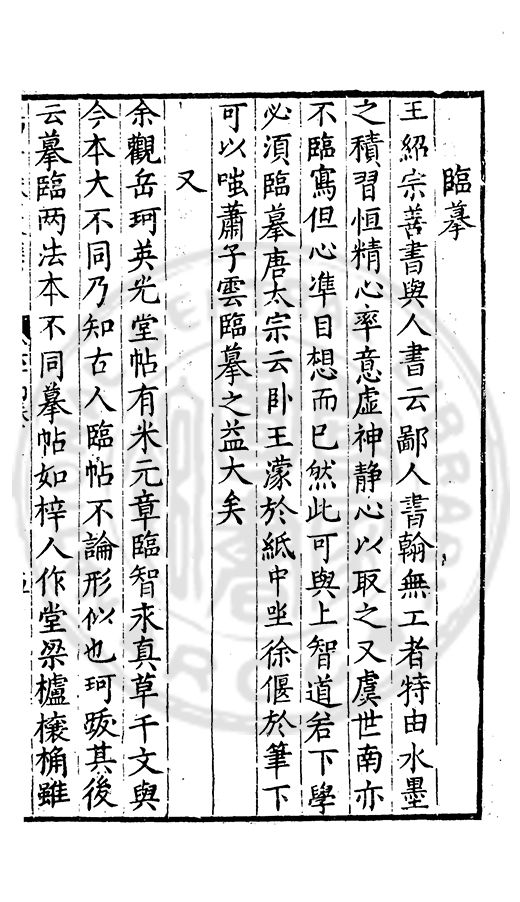 臨摹
王紹宗善書與人書云鄙人書翰無工者特由水墨
之積習恒精心率意虛神静心以取之又虞世南亦
不臨寫但心凖目想而已然此可與上智道若下學
必須臨摹唐太宗云卧王濛於紙中坐徐偃於筆下
可以嗤蕭子雲臨摹之益大矣
又
余觀岳珂英光堂帖有米元章臨智永真草千文與
今本大不同乃知古人臨帖不論形似也珂䟦其後
云摹臨两法本不同摹帖如梓人作堂梁櫨榱桷雖